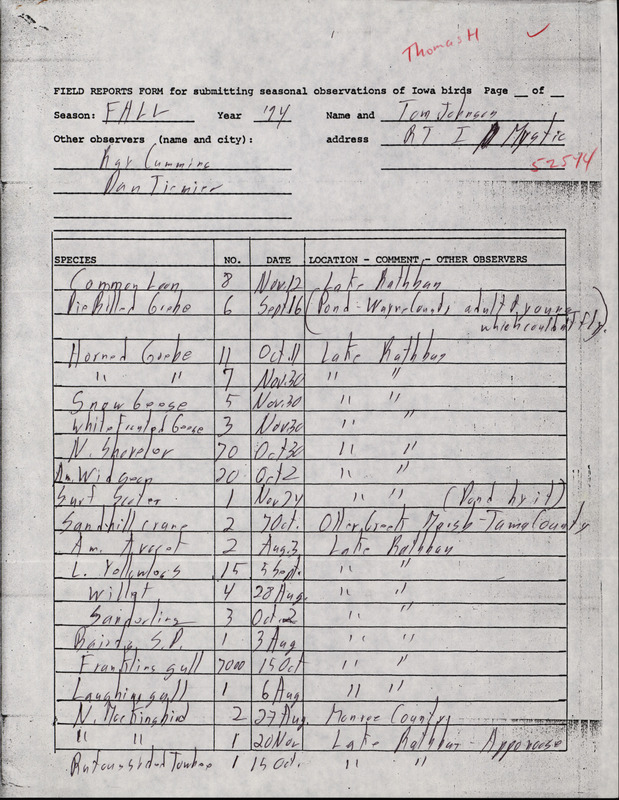 Thomas H
FIELD REPORTS FORM for submitting seasonal observations of Iowa birds Page __ of __
Season: FALL Year '94 Name and Tom Johnson
Other observers (name and city): address RT 1 Mystic
Ray Cummins 52574
Dan Tiemier
SPECIES NO. DATE LOCATION - COMMENT - OTHER OBSERVERS
Common Loon 8 Nov.12 Lake Rathbun
Pie Billed Grebe 6 Sept 16 (Pond - Wayne County adult & young
which couldn't fly).
Horned Grebe 11 Oct.11 Lake Rathbun
" " 7 Nov.30 " "
Snow Goose 5 Nov.30 " "
White Fronted Goose 3 Nov.30 "
N. Shovelor 70 Oct 30 " "
Am. Widgeon 20 Oct 2 " "
Surf Scoter 1 Nov 24 " " (Pond by it)
Sandhill crane 2 7 Oct. Otter Creek Marsh - Tama County
Am. Avocet 2 Aug.3 Lake Rathbun
L. Yellowlegs 15 5 Sept. " "
Willet 4 28 Aug. " "
Sanderling 3 Oct.2 " "
Bairds S.P. 1 3 Aug " "
Franklins gull 7000 15 Oct " "
Laughing gull 1 6 Aug " "
N. Mockingbird 2 27 Aug. Monroe County
" " 1 20 Nov Lake Rathbun - Appanoose
Rufoussided Towhee 1 15 Oct. " "